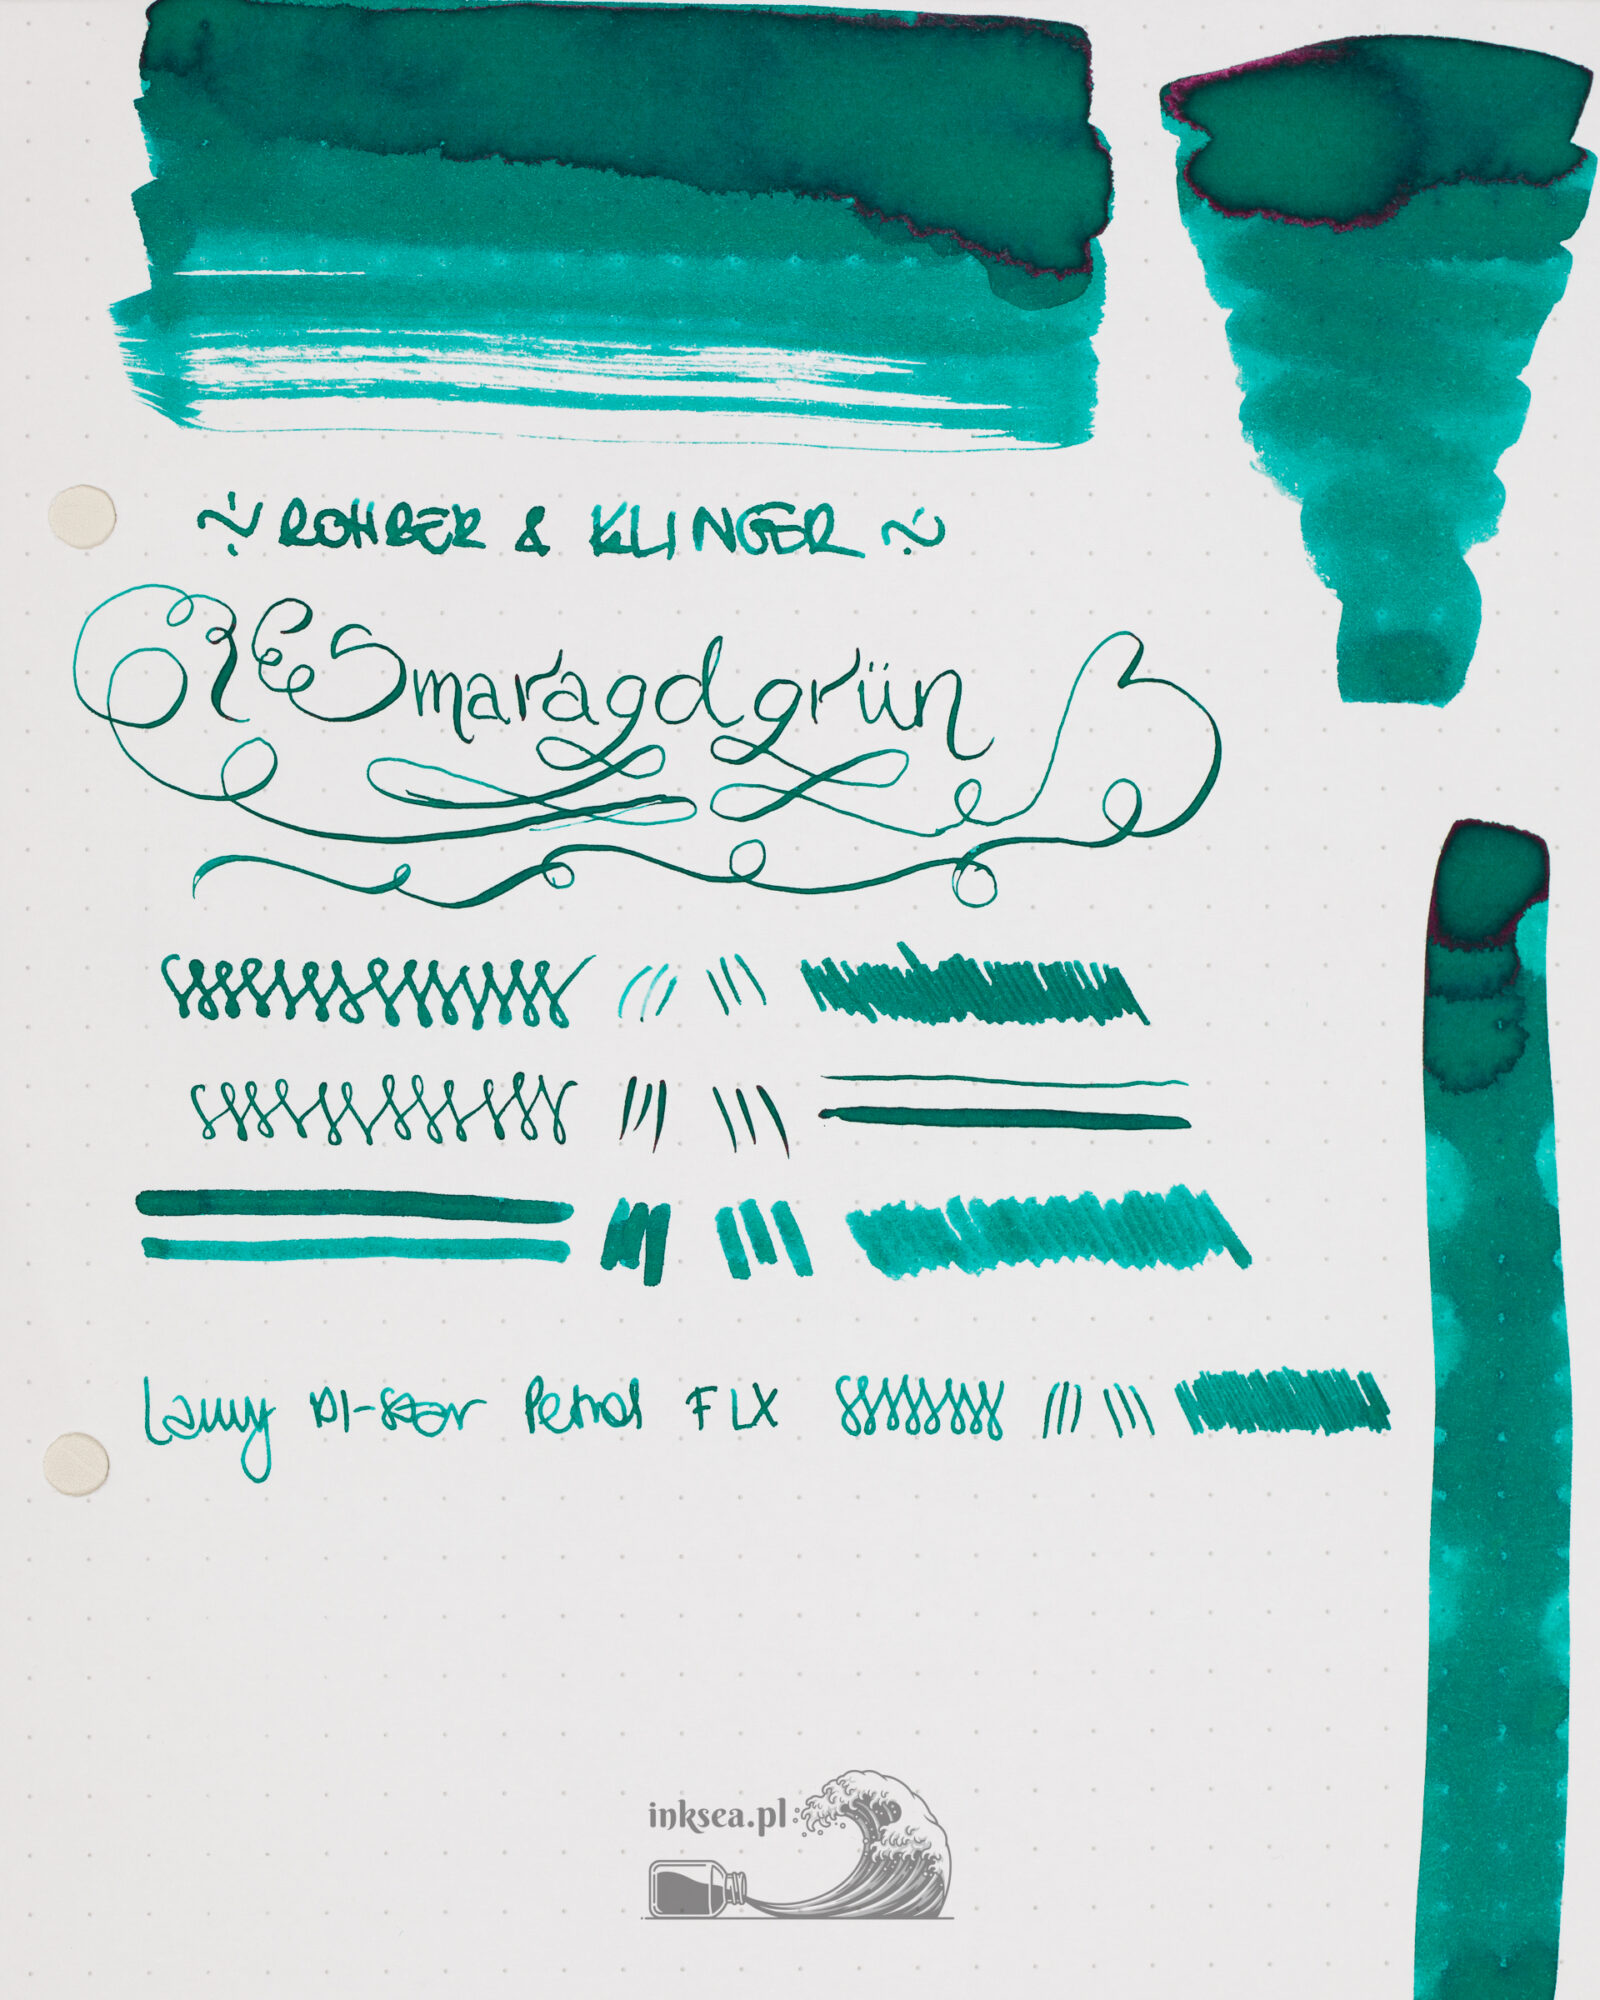 ~ ROHRER & KLINGER ~
Smaragdgrün
Lamy Al-Star Petrol F LX
inksea.pl